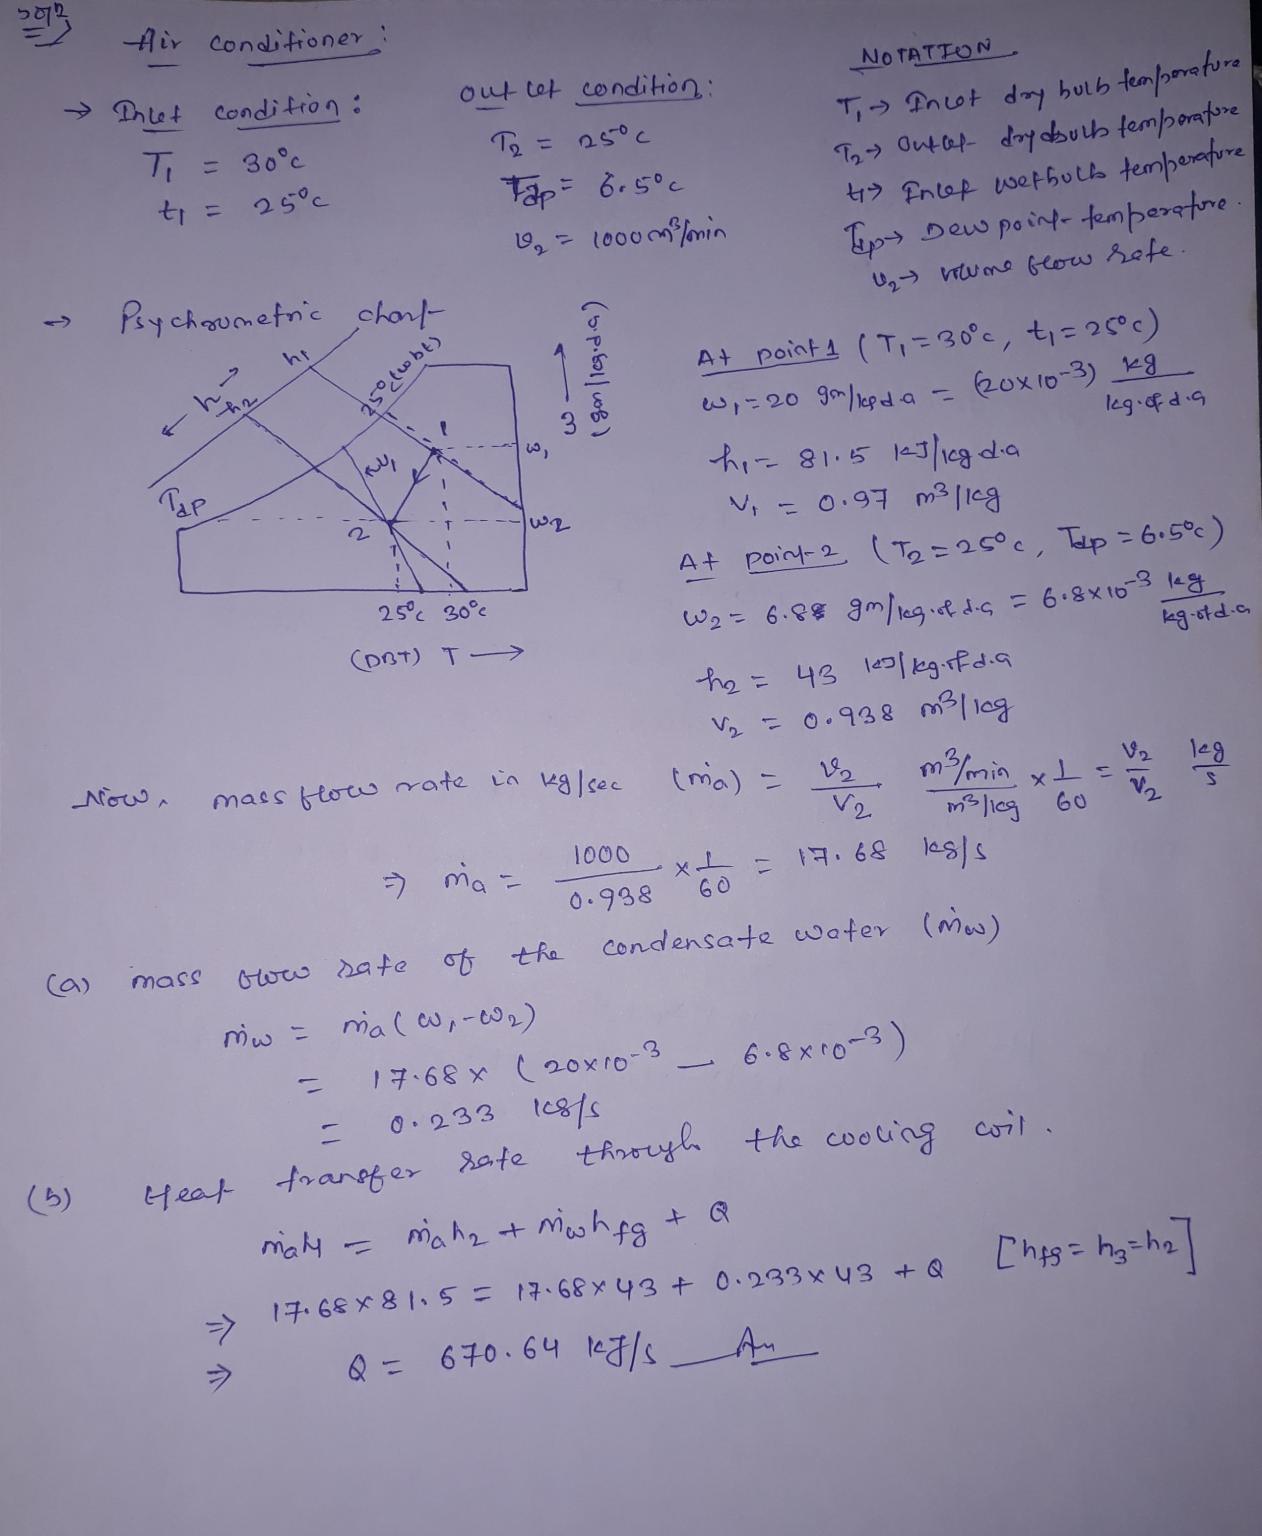 Soln
Air conditioner:
→ Inlet condition:
T1 = 30°c
t1 = 25°c
outlet condition:
T2 = 25°c
Tdp = 6.5°c
v2 = 1000 m³/min
NOTATION
T1 → Inlet dry bulb temperature
T2 → Outlet dry bulb temperature
t1 → Inlet wet bulb temperature
Tdp → Dew point temperature.
v2 → volume flow rate.
→ Psychrometric chart
h1
h
h2
25°c (wbt)
Tdp
v1
1
2
w1
w2
ω (gm/kg.d.a)
25°c 30°c
(DBT) T →
At point 1 (T1 = 30°c, t1 = 25°c)
w1 = 20 gm/kg d.a = (20×10-3) kg/kg.of d.a
h1 = 81.5 kJ/kg d.a
V1 = 0.97 m³/kg
At point-2 (T2 = 25°c, Tdp = 6.5°c)
w2 = 6.88 gm/kg.of d.a = 6.8×10-3 kg/kg.of d.a
h2 = 43 kJ/kg.of d.a
V2 = 0.938 m³/kg
Now, mass flow rate in kg/sec (ṁa) = v2/V2 m³/min/m³/kg × 1/60 = v2/V2 kg/s
⇒ ṁa = 1000/0.938 × 1/60 = 17.68 kg/s
(a) mass flow rate of the condensate water (ṁw)
ṁw = ṁa(w1-w2)
= 17.68 × (20×10-3 - 6.8×10-3)
= 0.233 kg/s
(b) Heat transfer rate through the cooling coil.
ṁah1 = ṁah2 + ṁwhfg + Q
⇒ 17.68×81.5 = 17.68×43 + 0.233×43 + Q [hfg = h3=h2]
⇒ Q = 670.64 kJ/s An